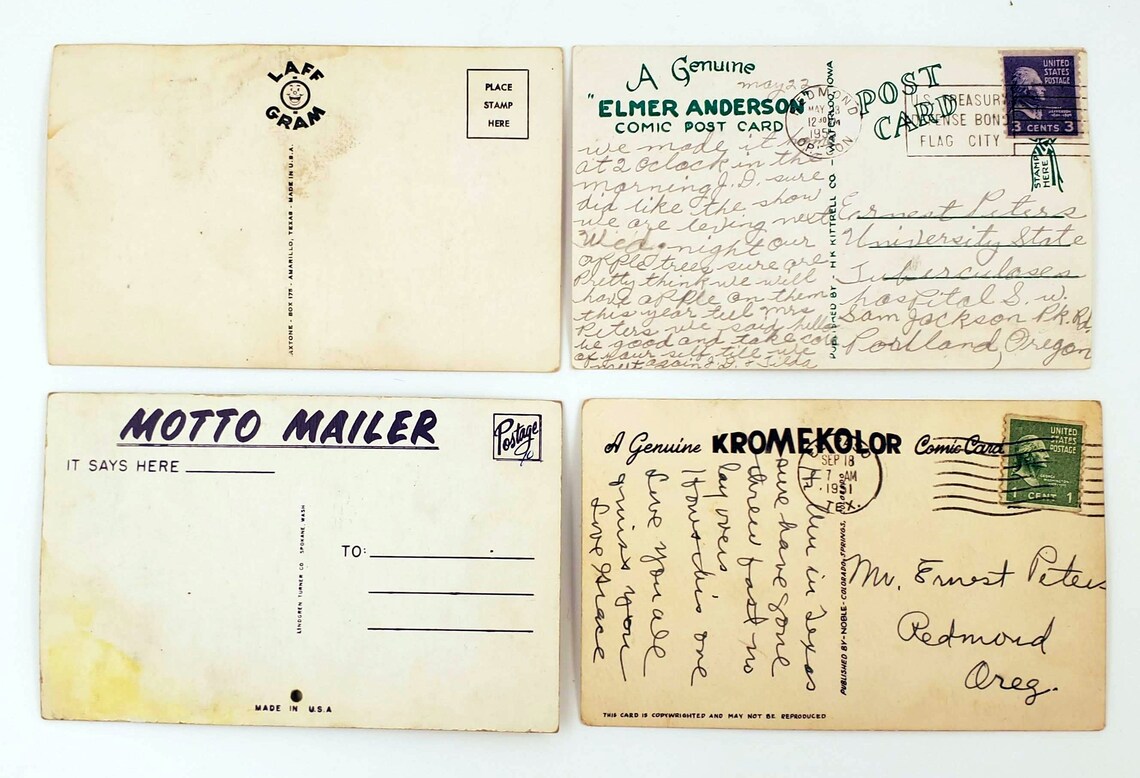 LAFF
GRAM
PLACE
STAMP
HERE
AXTONE - BOX 175 - AMARILLO, TEXAS - MADE IN U.S.A.
A Genuine
may 22
"ELMER ANDERSON"
COMIC POST CARD
we made it
at 2 oclock in the
morning J.D. sure
did like the show
we are leving next
Wed. night our
apple trees sure are
Pretty think we will
have apple on them
this year tell Mrs
Peters we said hello
be good and take care
of your self till we
meet again J.D. & Tilda
PUBLISHED BY - H.R. KITTRELL CO - WATERLOO, IOWA
POST
CARD
REDMOND
MAY 23
12 PM
OREGON
U.S. TREASURY
DEFENSE BONDS
FLAG CITY
UNITED
STATES
POSTAGE
3 CENTS 3
STAMP
HERE
Earnest Peters
University State
Tuberculoses
hospital S. W.
Sam Jackson Pk. Rd.
Portland, Oregon
MOTTO MAILER
Postage
IT SAYS HERE
TO:
LINDGREN TURNER CO. SPOKANE, WASH
MADE IN U.S.A
A Genuine KROMEKOLOR Comic Card
SEP 18
7 AM
TEX.
UNITED
STATES
POSTAGE
1 CENT 1
Hi. Am in Texas
sure have gone
threw fast no
lay overs
Hows this one
Love you all
& miss you
Love Grace
PUBLISHED BY - NOBLE - COLORADO SPRINGS, COLORADO
Mr. Ernest Peters
Redmond
Oreg.
THIS CARD IS COPYWRIGHTED AND MAY NOT BE REPRODUCED